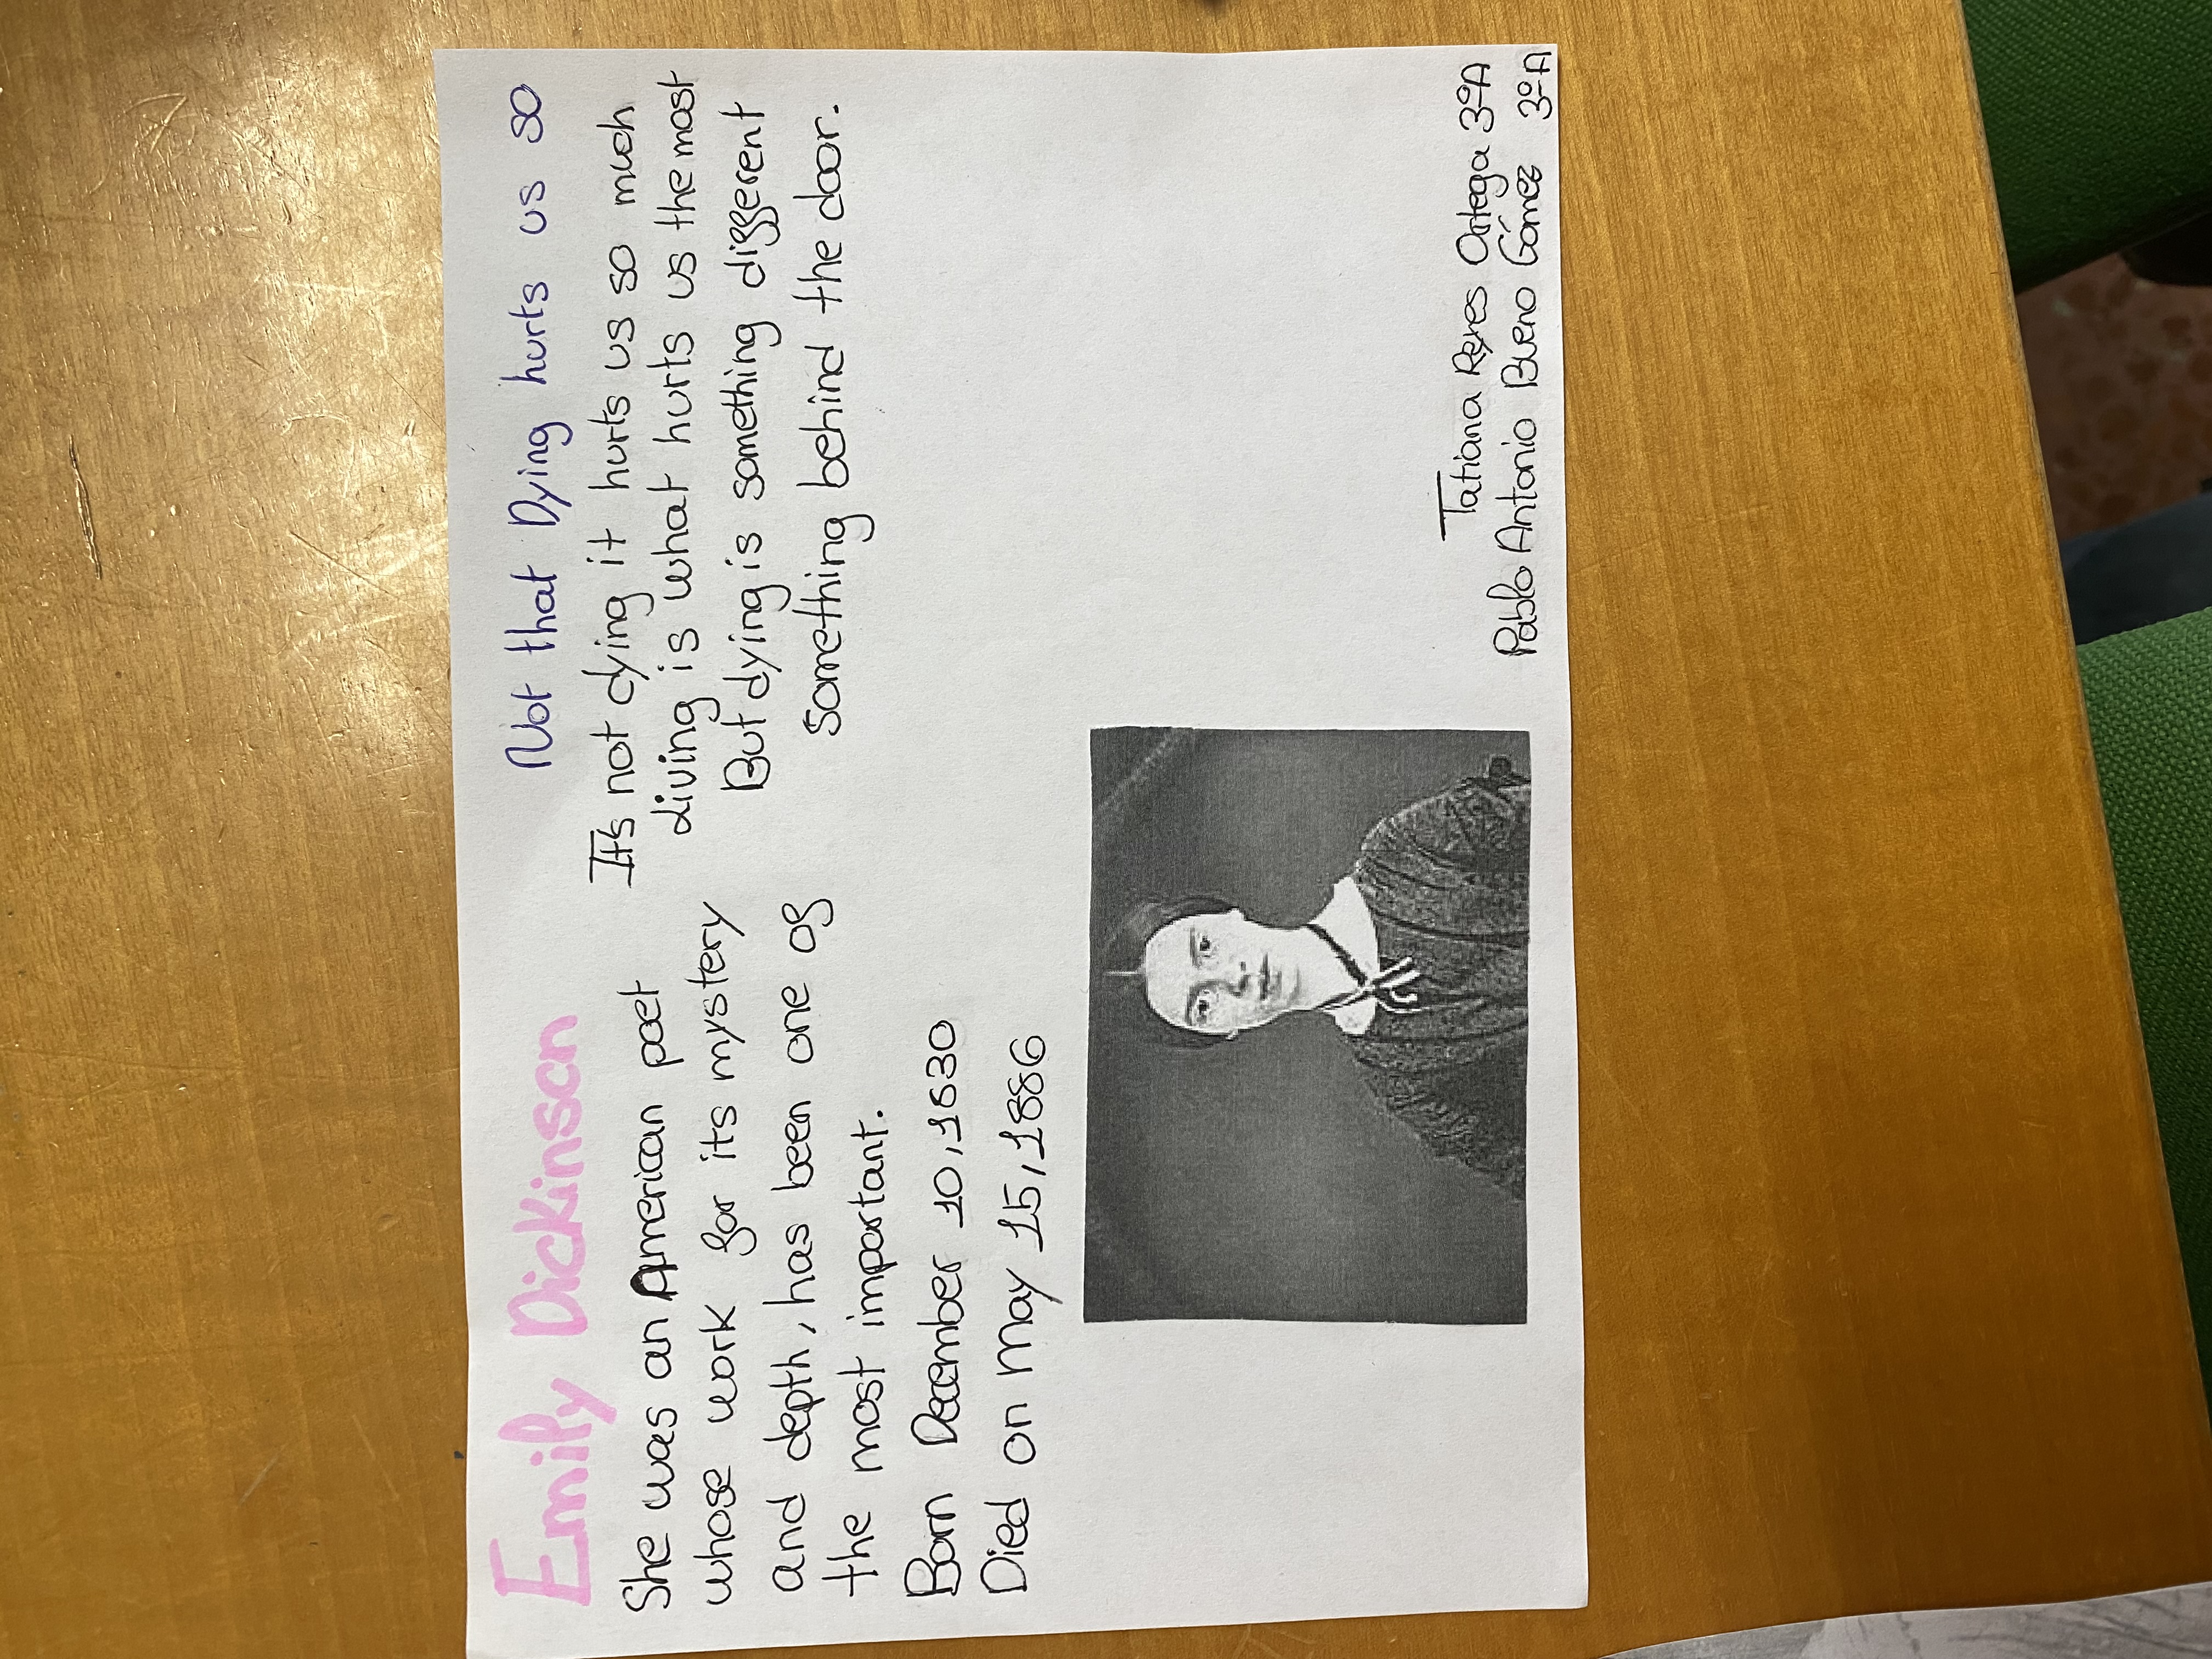 Emily Dickinson
She was an American poet
whose work for its mystery
and depth, has been one of
the most important.
Born December 10, 1830
Died on may 15, 1886
Not that Dying hurts us so
It's not dying it hurts us so much
diving is what hurts us the most
But dying is something different
Something behind the door.
Tatiana Reyes Ortega 3ºA
Pablo Antonio Bueno Gómez 3ºA